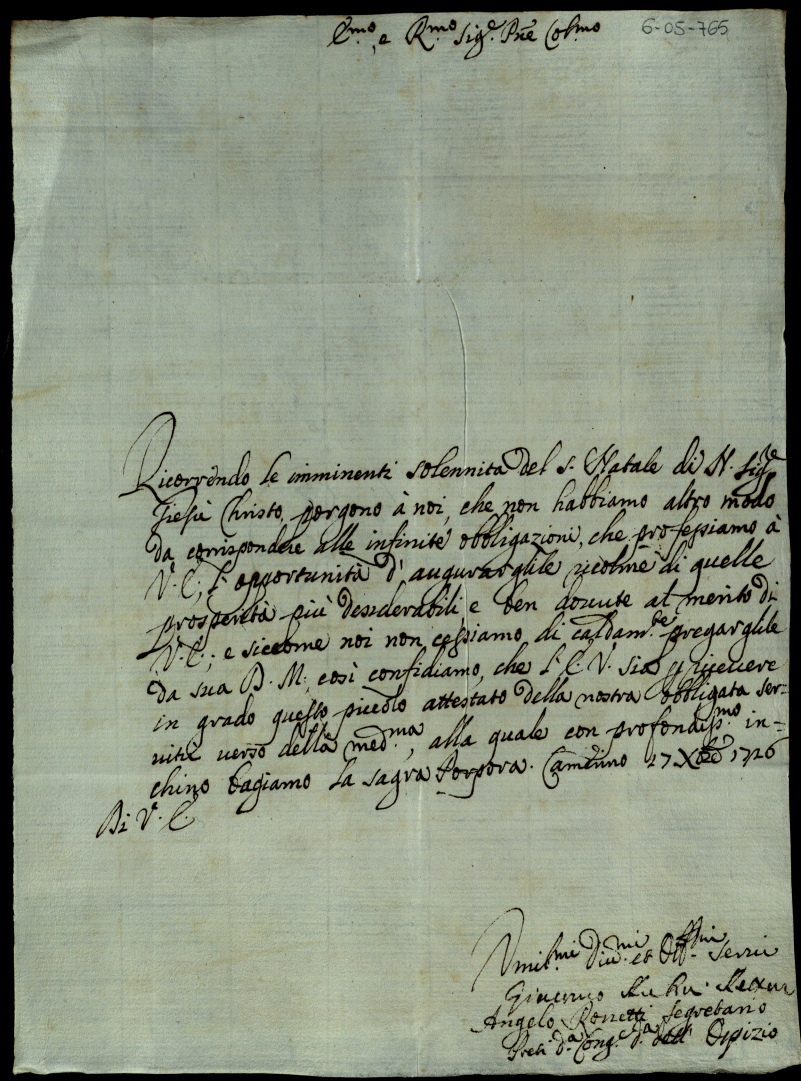 E.mo, e R.mo Sig.e P̃ne Col.mo
6-05-765
Ricorrendo le imminenti solennità del S. Natale di N. Sig.re
Giesù Christo, porgono à noi, che non habbiamo altro modo
da corrispondere alle infinite obbligazioni, che professiamo à
V. E., l'opportunità d'augurargliele ricolme di quelle
prosperità più desiderabili, e ben dovute al merito di
V. E.; e siccome noi non cessiamo di caldam.te pregargliele
da sua D. M., così confidiamo, che l'E. V. sia p ricevere
in grado questo piccolo attestato della nostra obbligata ser=
vitù verso della med.ma, alla quale con profondiss.mo in=
chino bagiamo la sagra Porpora. Camerino 27 Xbre 1726
Di V. E.
Umil.mi Div.mi et Obb.mi Servi
Giacomo
Angelo Segretario
Preti d.a Cong.e d.a dell' Ospizio